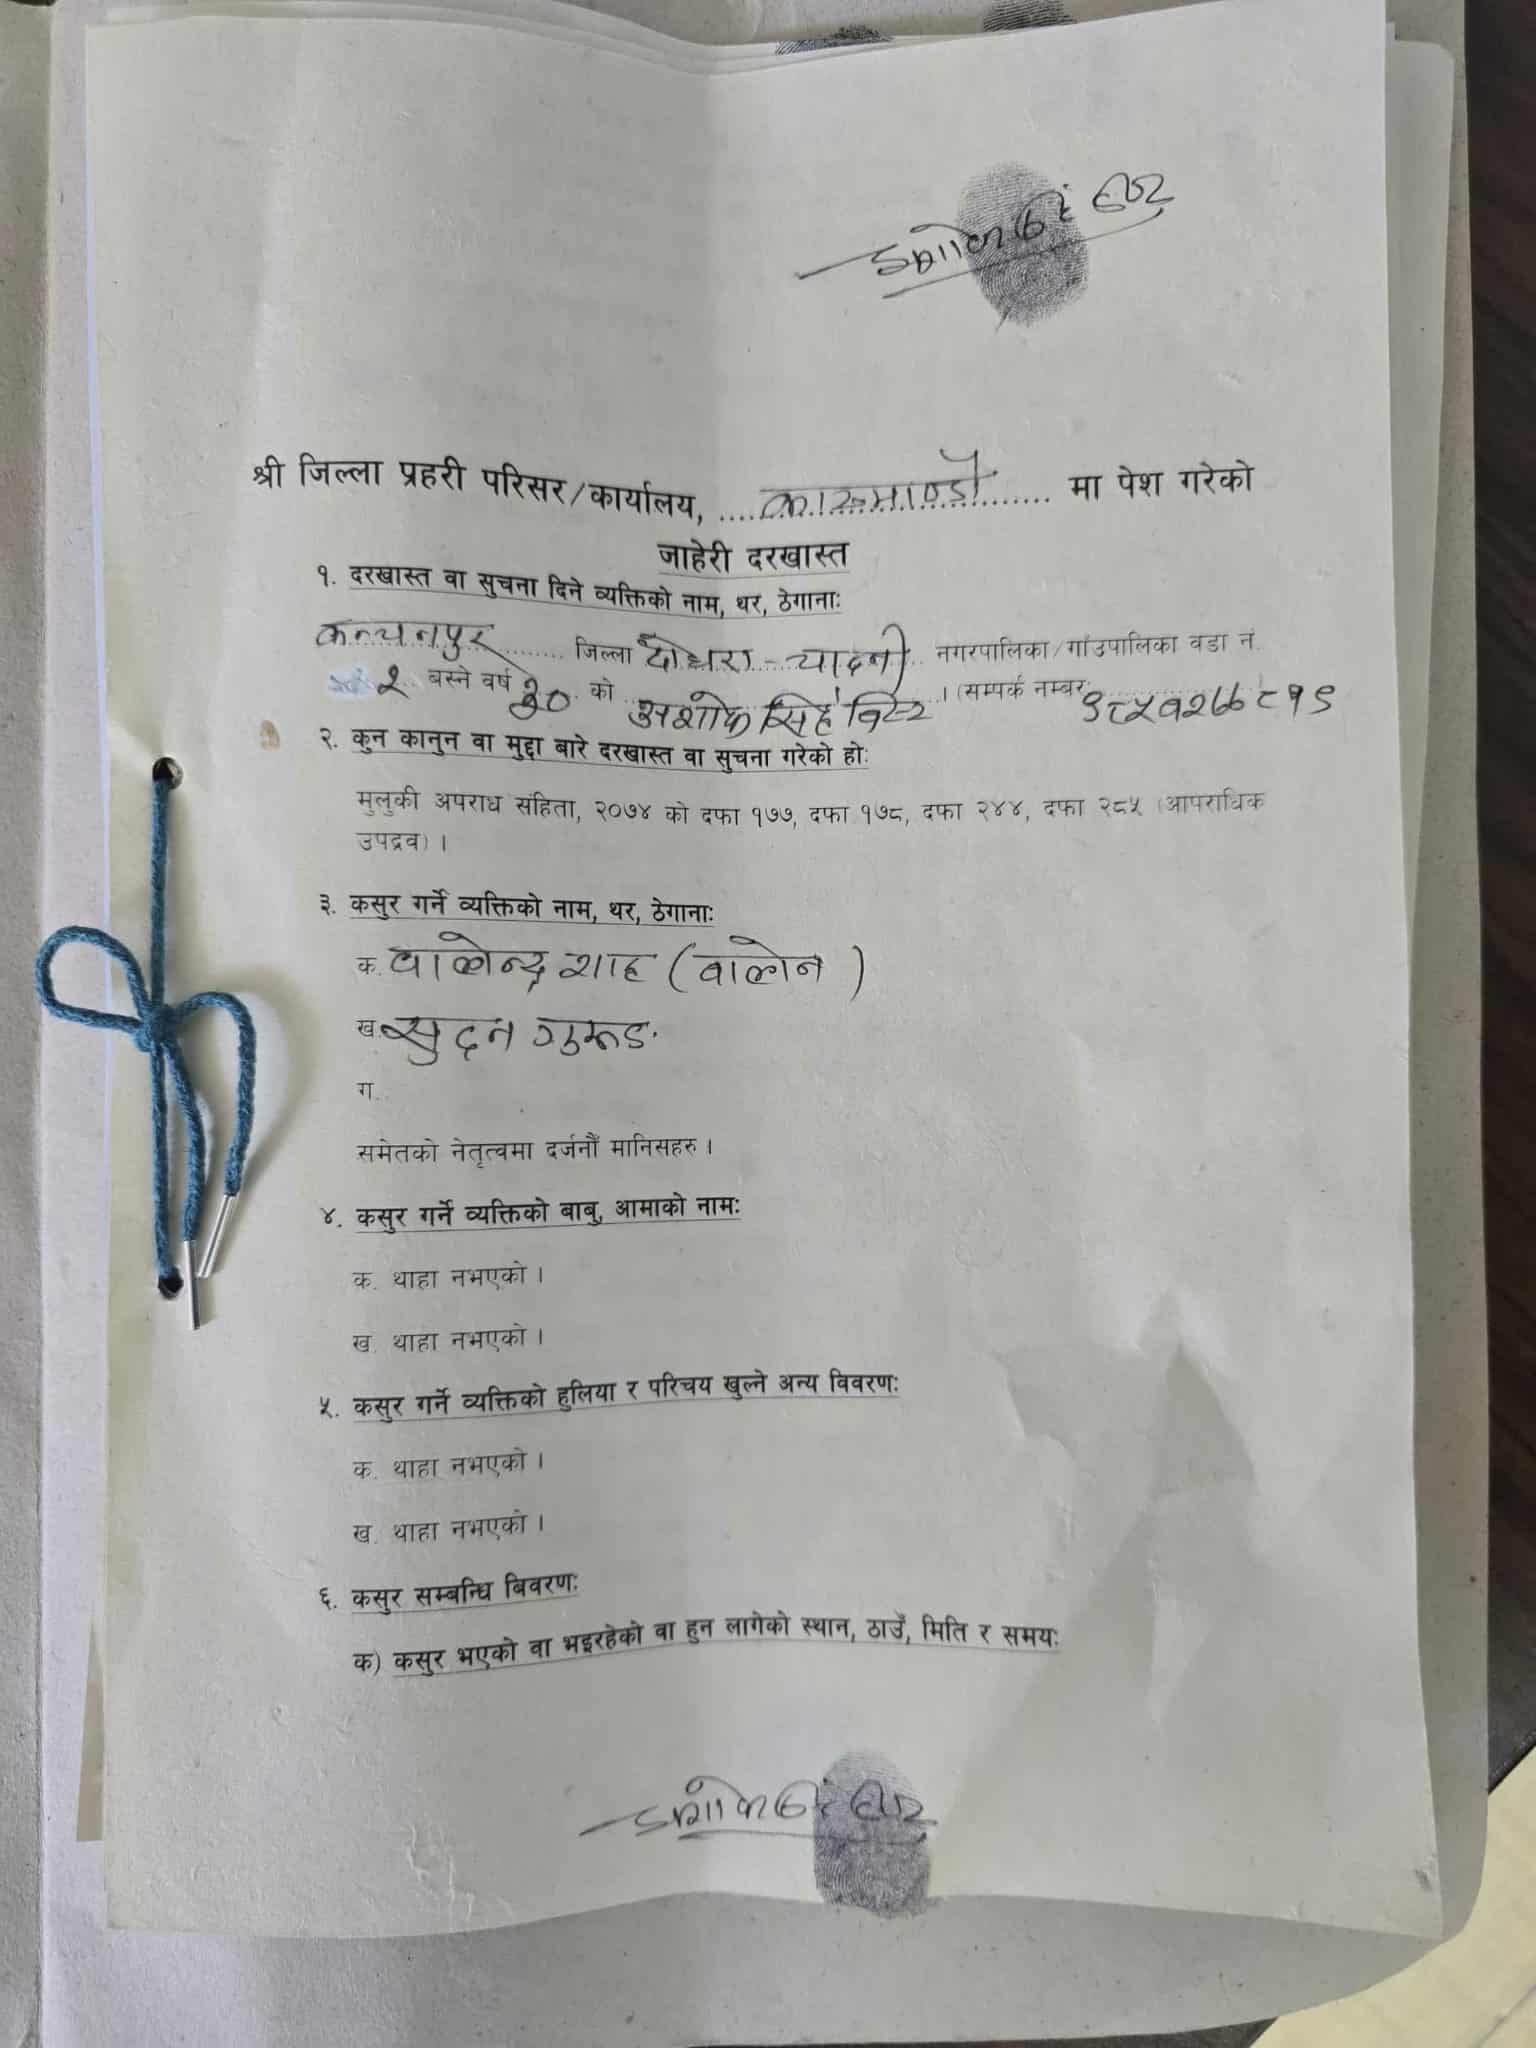 अशोक सिं बिष्ट
श्री जिल्ला प्रहरी परिसर/कार्यालय, ....काठमाण्डौ.... मा पेश गरेको
जाहेरी दरखास्त
१. दरखास्त वा सुचना दिने व्यक्तिको नाम, थर, ठेगानाः
कन्चनपुर ........ जिल्ला दोधारा - चादनी नगरपालिका/गाउँपालिका वडा नं.
२ बस्ने वर्ष ३० को अशोक सिंह बिष्ट । (सम्पर्क नम्बरः ९८५१२७७८१९
२. कुन कानुन वा मुद्दा बारे दरखास्त वा सुचना गरेको होः
मुलुकी अपराध संहिता, २०७४ को दफा १७७, दफा १७८, दफा २४४, दफा २८५ (आपराधिक
उपद्रव) ।
३. कसुर गर्ने व्यक्तिको नाम, थर, ठेगानाः
क. वालेन्द्र शाह (वालेन)
ख. सुदन गुरूङ.
ग.
समेतको नेतृत्वमा दर्जनौँ मानिसहरु ।
४. कसुर गर्ने व्यक्तिको बाबु, आमाको नामः
क. थाहा नभएको ।
ख. थाहा नभएको ।
५. कसुर गर्ने व्यक्तिको हुलिया र परिचय खुल्ने अन्य विवरणः
क. थाहा नभएको ।
ख. थाहा नभएको ।
६. कसुर सम्बन्धि बिवरणः
क) कसुर भएको वा भइरहेको वा हुन लागेको स्थान, ठाउँ, मिति र समयः
अशोक सिं बिष्ट